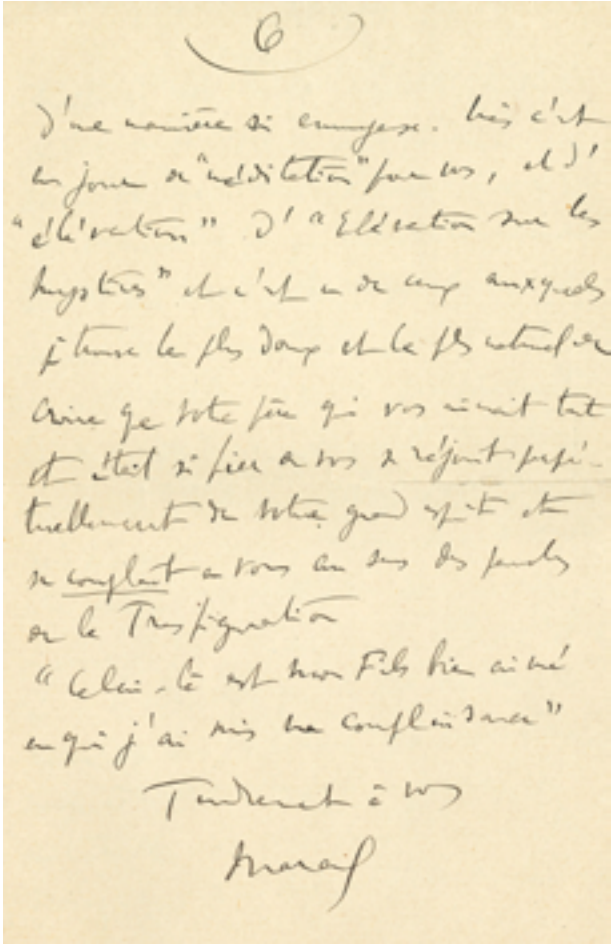 6
d'une manière si ennuyeuse. Mais c'est
un jour de "méditation" pour vous, et d'
"élévation" d'"Elévation sur les
mystères" et c'est un de ceux auxquels
je trouve le plus doux et le plus naturel de
croire que votre père qui vous aimait tant
et était si fier de vous se réjouit perpé-
tuellement de votre grand esprit et
se complait en vous au sens des paroles
de la Transfiguration
"Celui-là est mon Fils bien aimé
en qui j'ai mis ma complaisance"
Tendrement à vous
Marcel